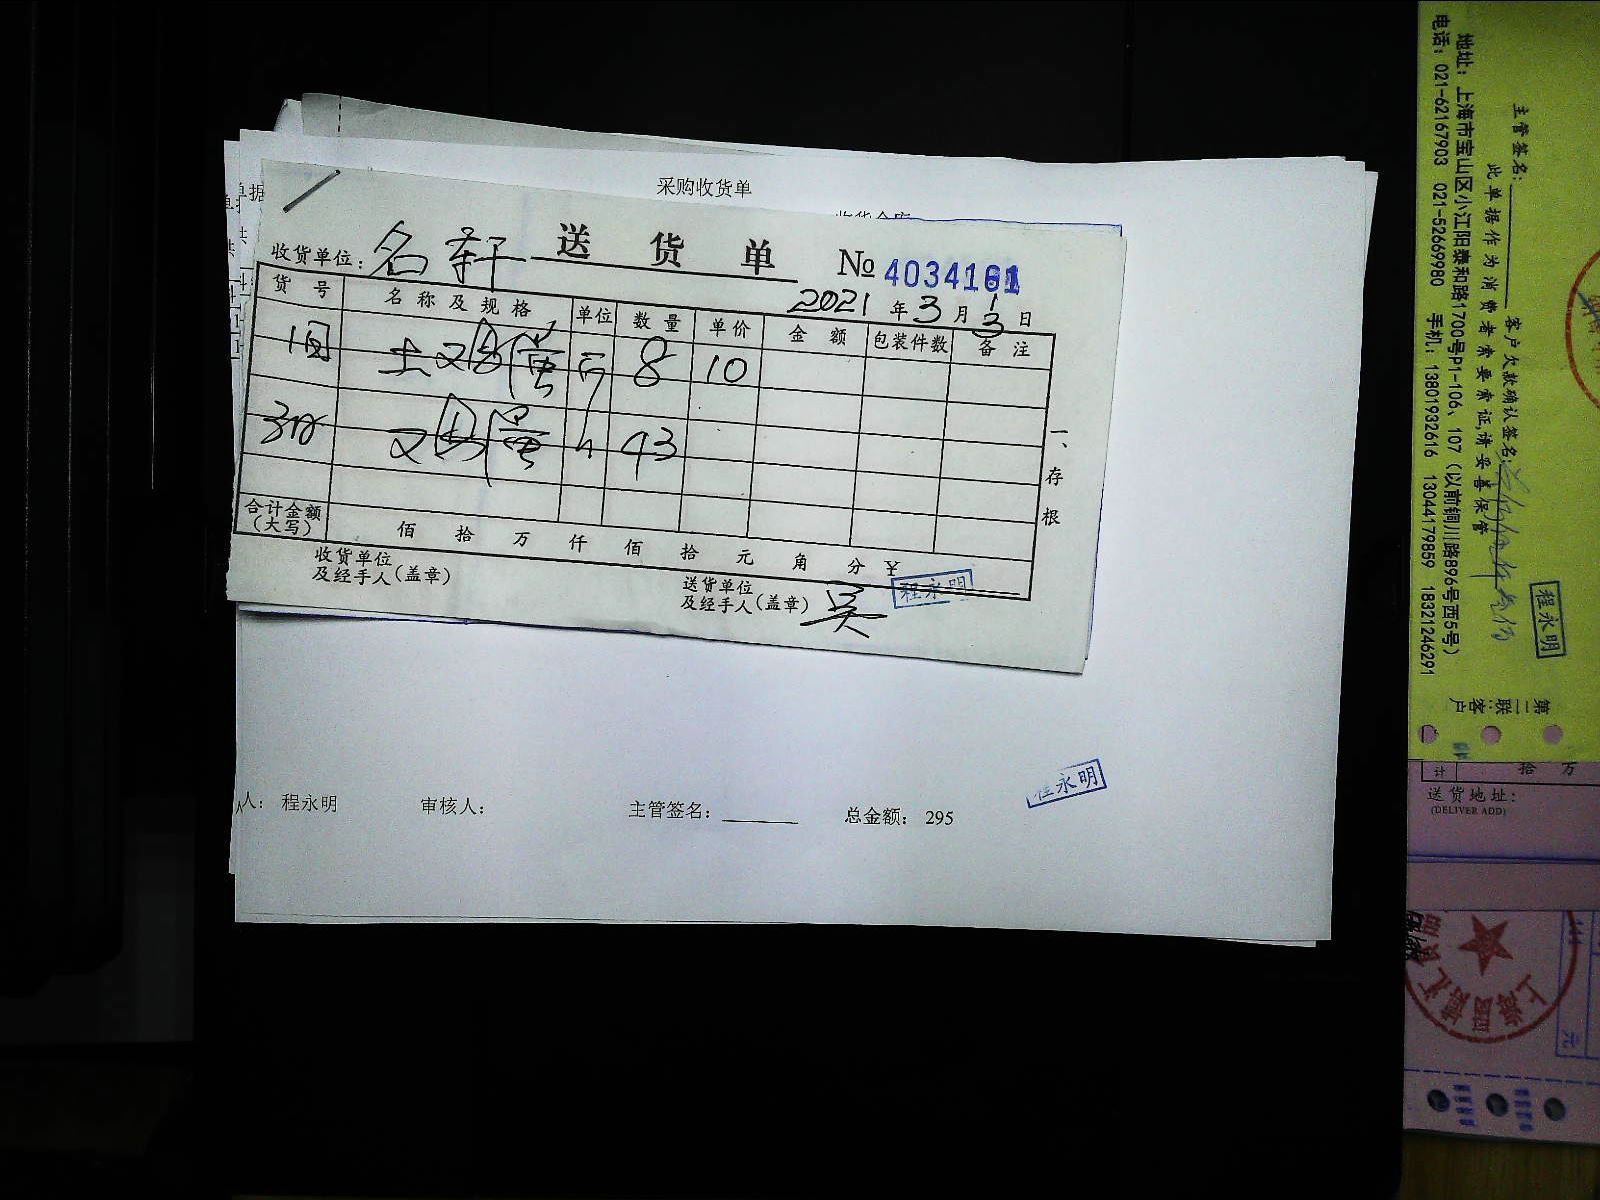 采购收货单
单据
送货单
№ 4034161
收货单位：名轩
2021年3月3日
货号 名称及规格 单位 数量 单价 金额 包装件数 备注
8 10
43
合计金额
（大写） 佰 拾 万 仟 佰 拾 元 角 分 ¥
收货单位
及经手人（盖章）
送货单位
及经手人（盖章） 吴
程永明
一、存根
人： 程永明 审核人： 主管签名： 总金额： 295
程永明
主管签名：
客户欠款确认签名：
此单据作为消费者索要索证，请妥善保管
地址：上海市宝山区小江阳泰和路1700号P1-106、107（以前铜川路896号西5号）
电话：021-62167903 021-52669980 手机：13801932616 13044179859 18321246291
程永明
第二联：客户
计 拾 万
送货地址：
(DELIVER ADD)
元